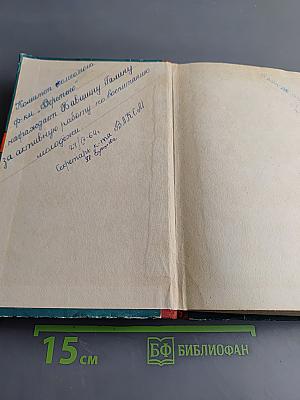 Комитет комсомола
ф-ки „Веретено"
награждает Бавшину Галину
за активную работу по воспитанию
молодежи.
Секретарь к-та ВЛКСМ
15 см
БФ БИБЛИОФАН